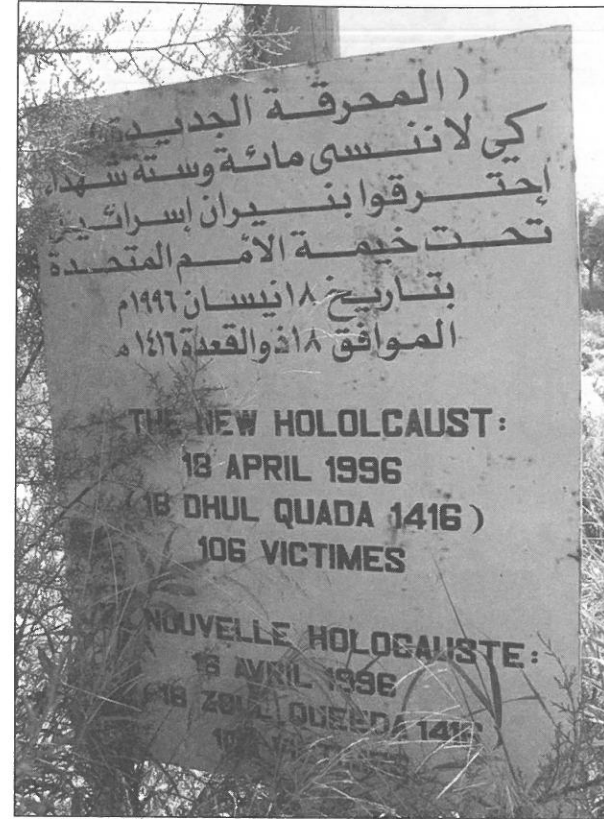 (المحرقة الجديدة)
كي لا ننسى مائة وستة شهداء
إحترقوا بنيران إسرائيل
تحت خيمة الأمم المتحدة
بتاريخ ١٨ نيسان ١٩٩٦م
الموافق ١٨ ذو القعدة ١٤١٦ه
THE NEW HOLOLCAUST:
18 APRIL 1996
(18 DHUL QUADA 1416)
106 VICTIMES
NOUVELLE HOLOCAUSTE:
18 AVRIL 1996
18 ZOUL QUEEDA 1416